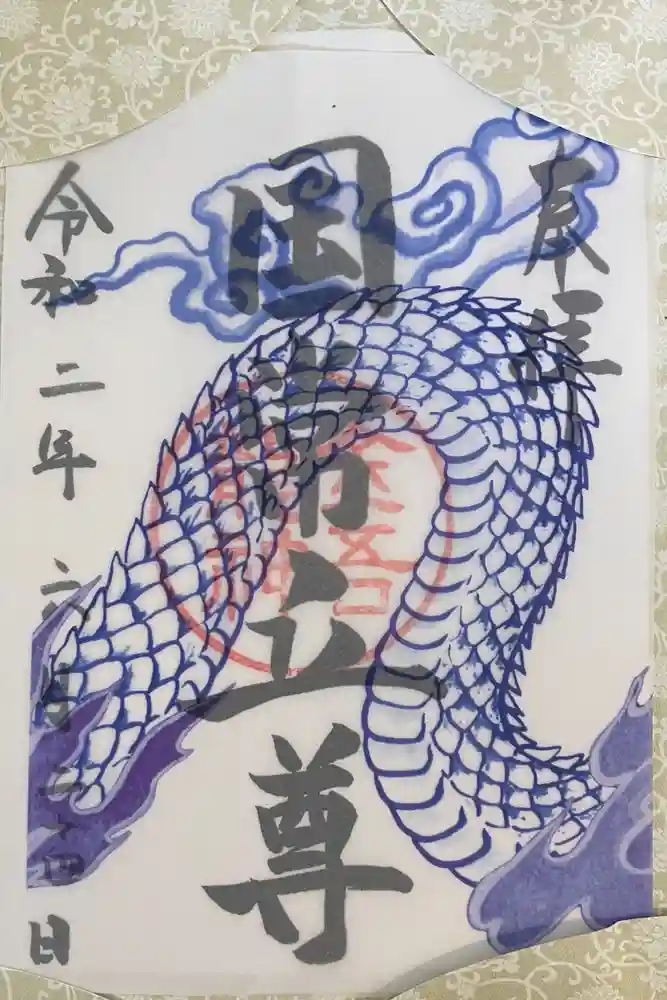 奉拝
国常立尊
金吾
龍神
令和二年六月二十四日